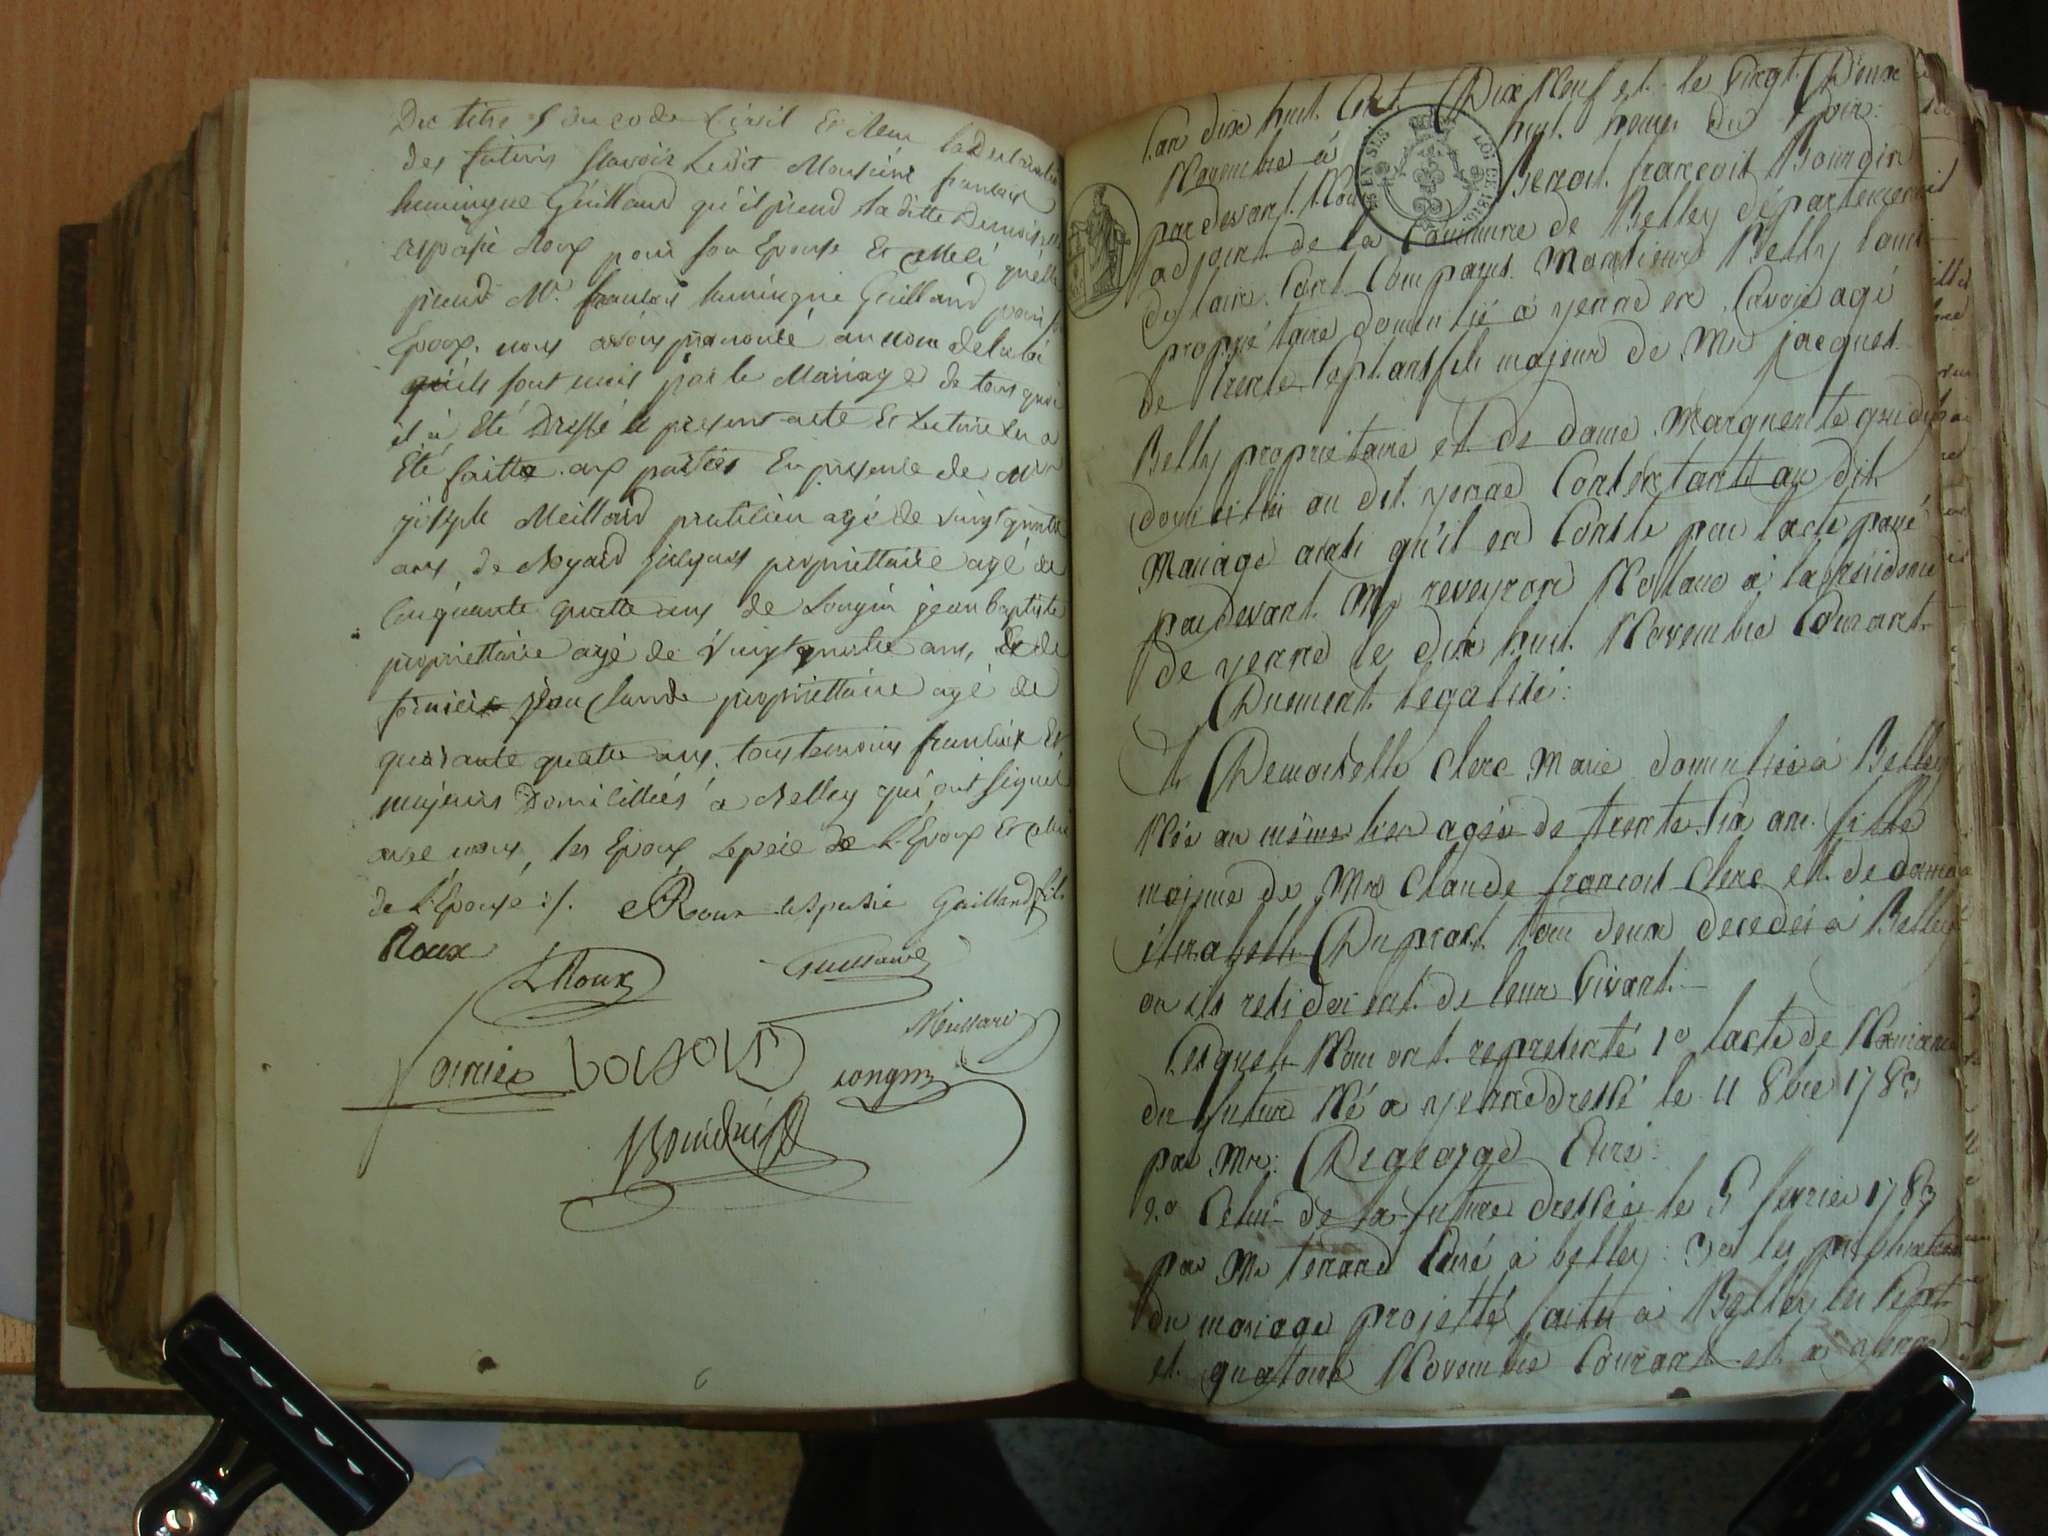 Du titre 5 du code Civil Et Recu la Declaration
des futurs Savoir Ledit Monsieur francois
huningue Guilland qu'il prend la ditte Demoiselle
aspasie Roux pour son Epouse Et Celleci quelle
prend Mr. francois huningue Guilland pour
Epoux. nous avons prononcé au nom de la loi
qu'ils sont unis par le Mariage de tous quoi
il à Eté Dressé le présent acte Et Lecture en a
Eté faitte aux parties En présence de
joseph Meillard praticien agé de vingt quatre
ans, de Noyard jacques propriettaire agé de
Cinquante quatre ans de Longin jean baptiste
propriettaire agé de Vingt quatre ans, de
fornier jean Claude propriettaire agé de
quarante quatre ans. tous temoins francais Et
majeurs Domicilliés à Belley qui ont signé
avec nous, les Epoux Le père de L'Epoux Et celui
de L'Epouse ./. Roux aspasie Guilland fils
Roux
Roux Guilland
Meillard
fornier longin
Bourdin
Lan dix huit Cent Dix Neuf et le Vingt Deux
Novembre à huit heures du Soir:
par devant Nous Benoit françois Bourdin
adjoint de la Commune de Belley département
de lain. Sont Comparus Monsieur Belly Louis
propriétaire domicilié à yenne en Savoie agé
de trente Sept ans fils majeur de Mr jacques
Belly propriétaire et de dame Marguerite
domiciliés au dit yenne Consentants au dit
Mariage ainsi qu'il en Conste par lacte passé
par devant Mr reveyron Notaire à la résidence
de yenne le dix huit Novembre Courant
Duement légalisé:
Et Demoiselle Clerc Marie domiciliée à Belley
Née au même lieu agée de trente Six ans fille
majeure de Mr Claude françois Clerc et de dame
Elisabeth Duprat tous deux décédés à Belley
ou ils residoient de leur Vivant.
Lesquels Nous ont représenté 1o lacte de Naissance
du futur Né a yenne dressé le 11 8bre 1782
par Mr: Degeorge Curé:
2o Celui de la future dressée le 5 fevrier 1783
par Mr tenand Curé à belley: 3o les publications
du mariage projetté faites à Belley les Sept
et quatorze Novembre Courant et a yenne
6